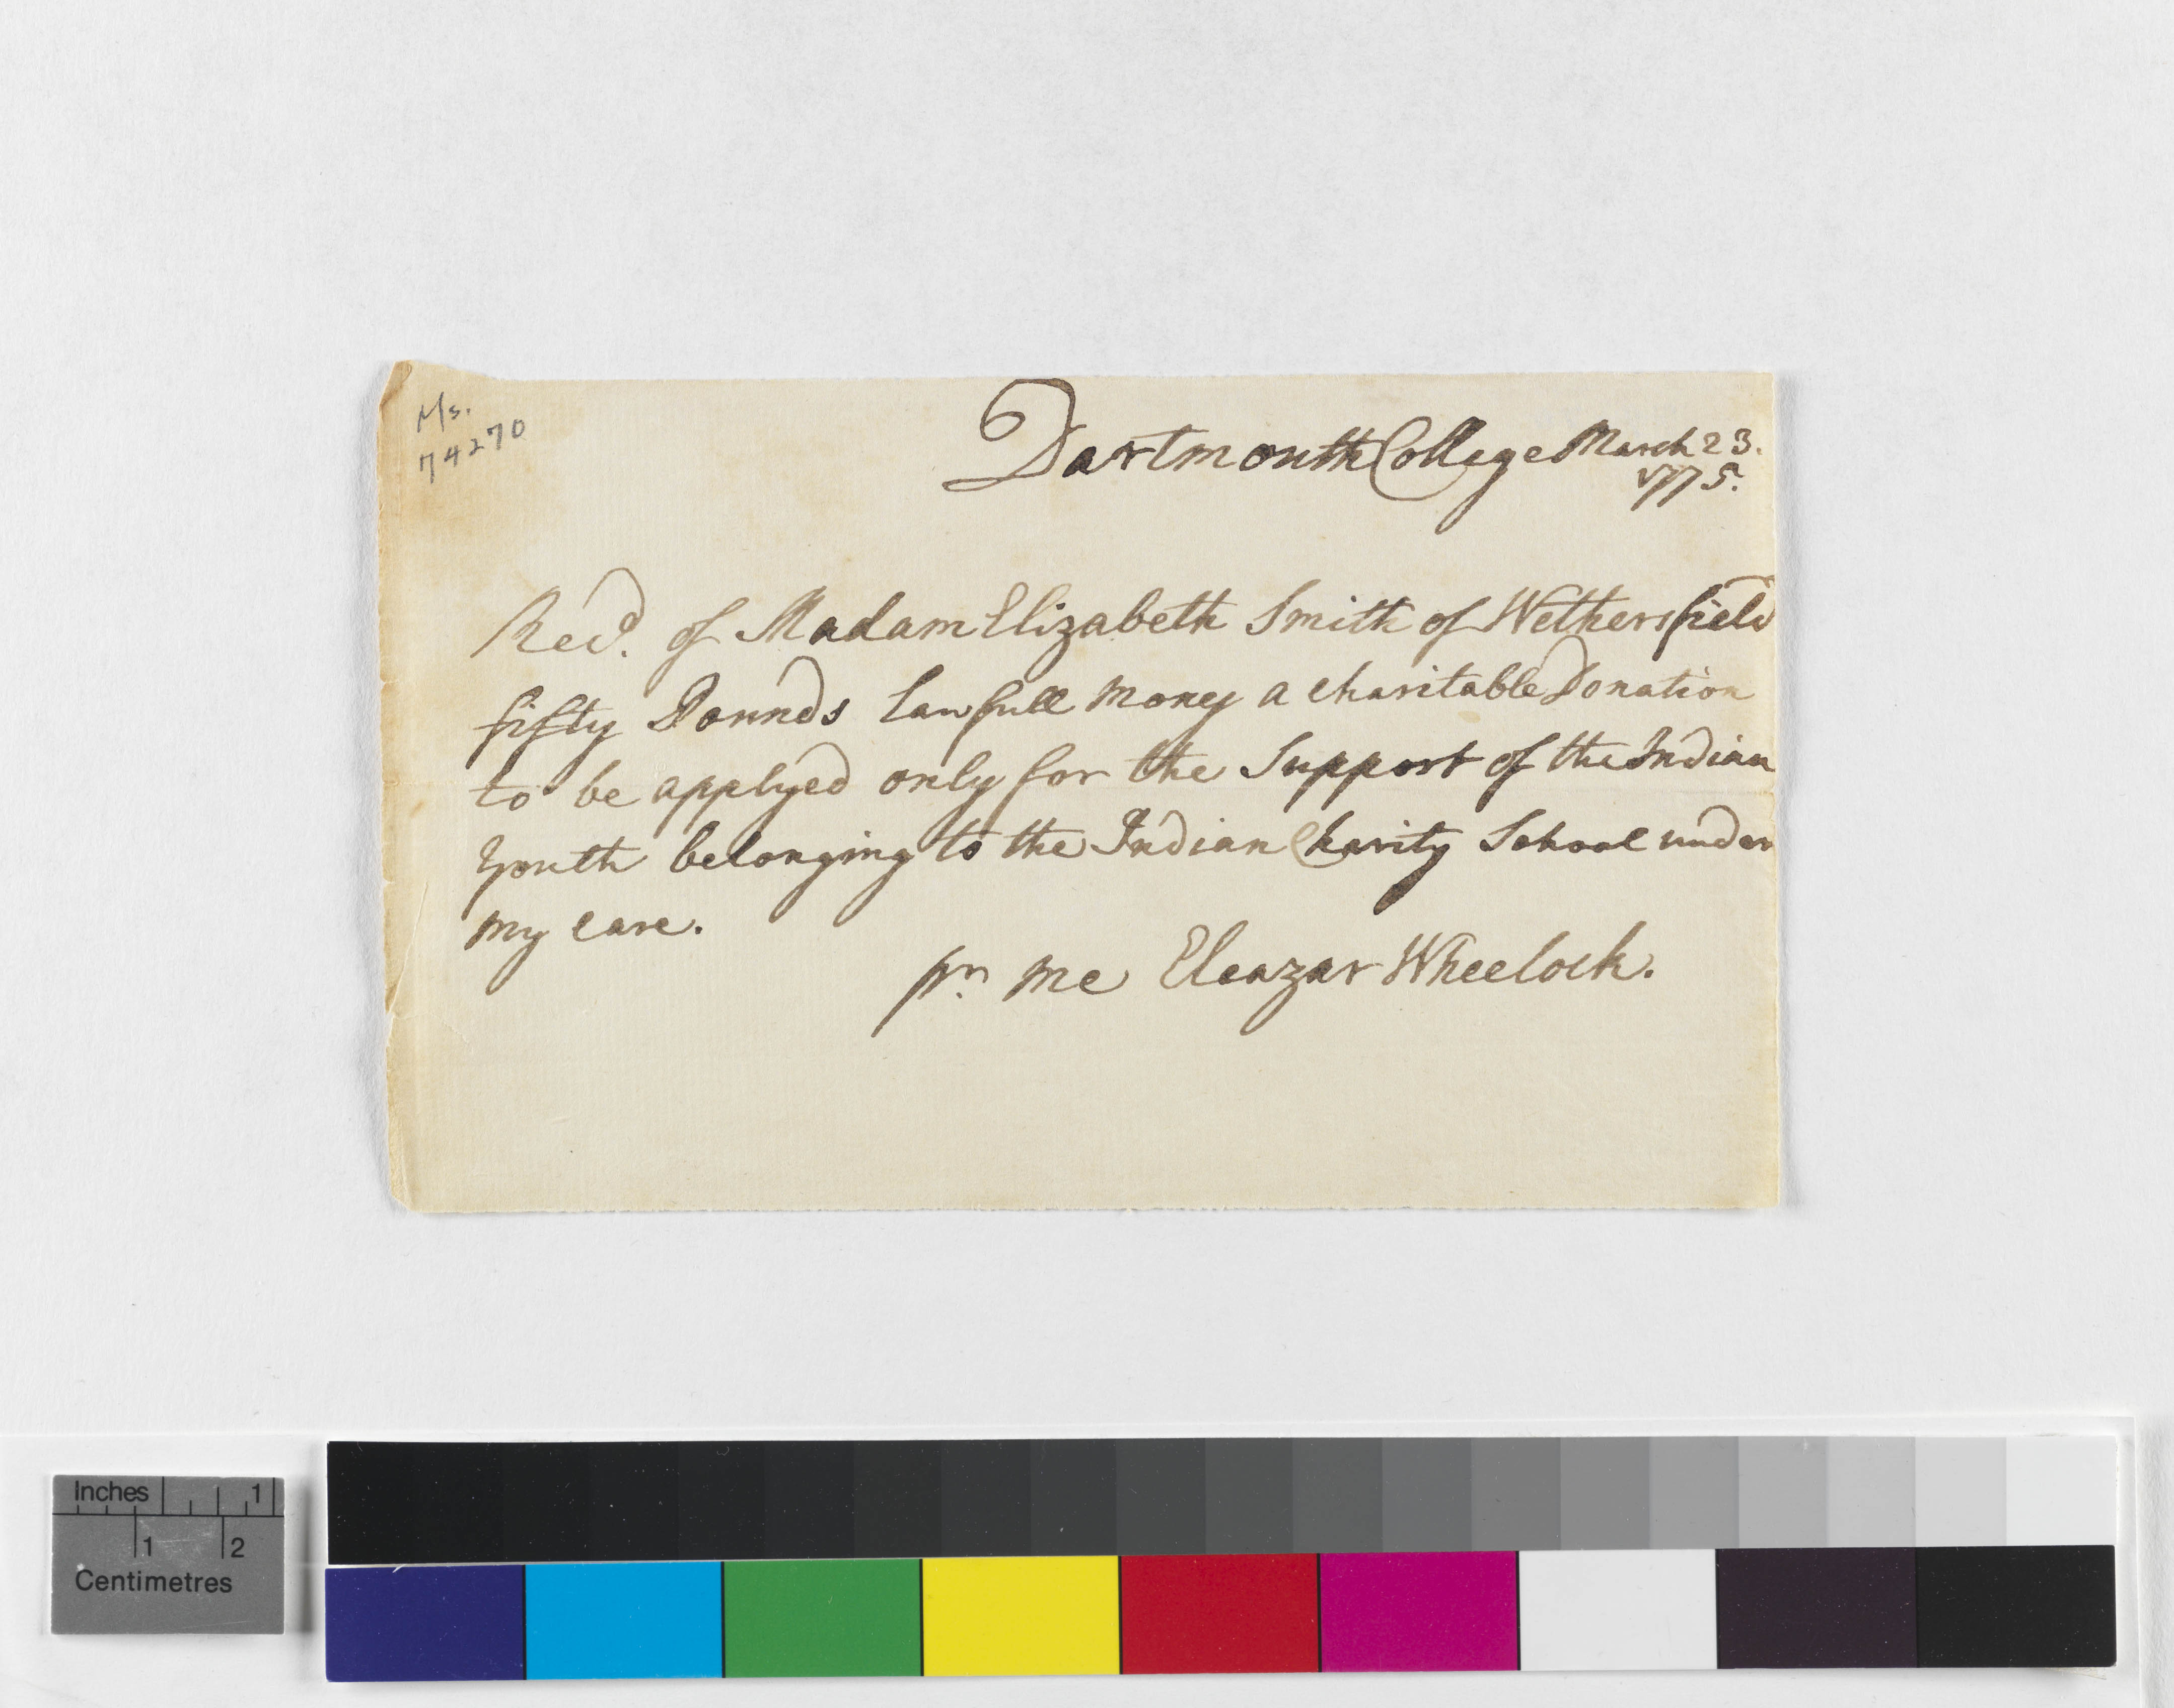 Ms.
74270
Dartmouth College March 23.
1775.
Recd. of Madam Elizabeth Smith of Wethersfield
fifty Pounds lawfull money a charitable Donation
to be applyed only for the Support of the Indian
Youth belonging to the Indian Charity School under
my care.
pr. me Eleazar Wheelock.
Inches 1
1 2
Centimetres